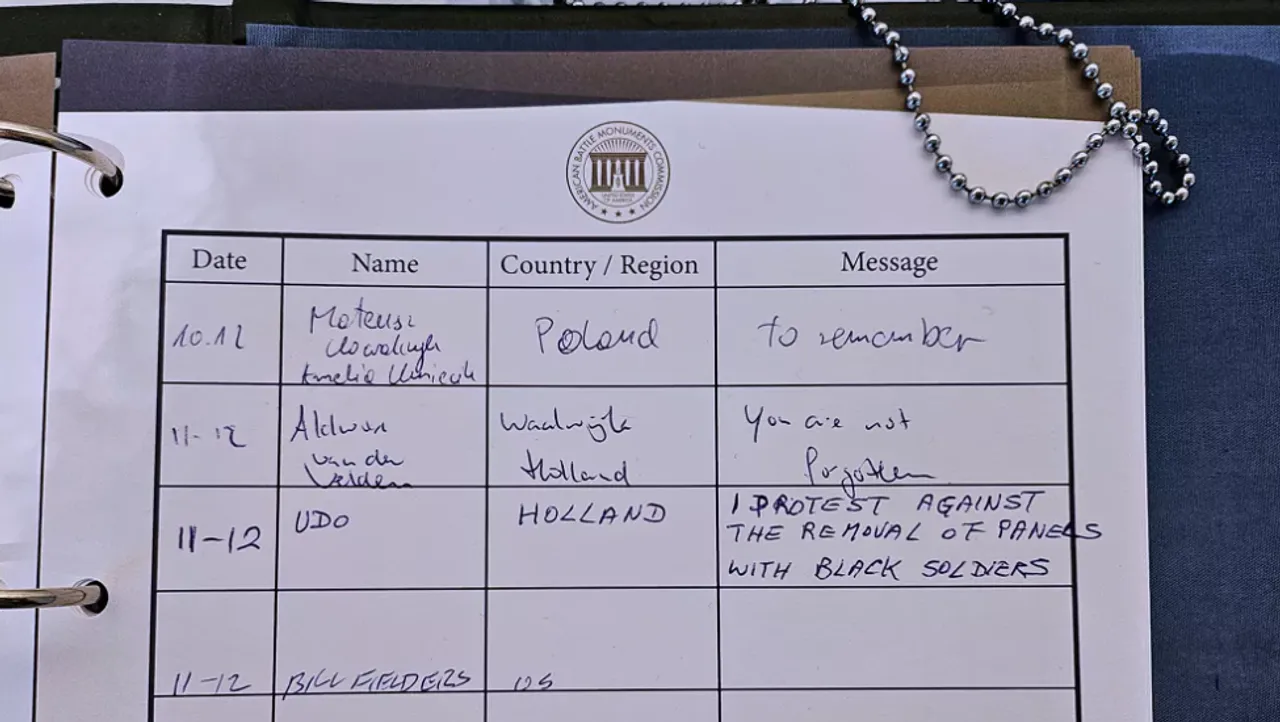 AMERICAN BATTLE MONUMENTS COMMISSION
UNITED STATES
OF AMERICA
Date Name Country / Region Message
10.12 Mateusz Poland to remember
Amelia
11-12 Waalwijk You are not
van der Holland Forgotten
Velden
11-12 UDO HOLLAND I PROTEST AGAINST
THE REMOVAL OF PANELS
WITH BLACK SOLDIERS
11-12 BILL FIELDERS US